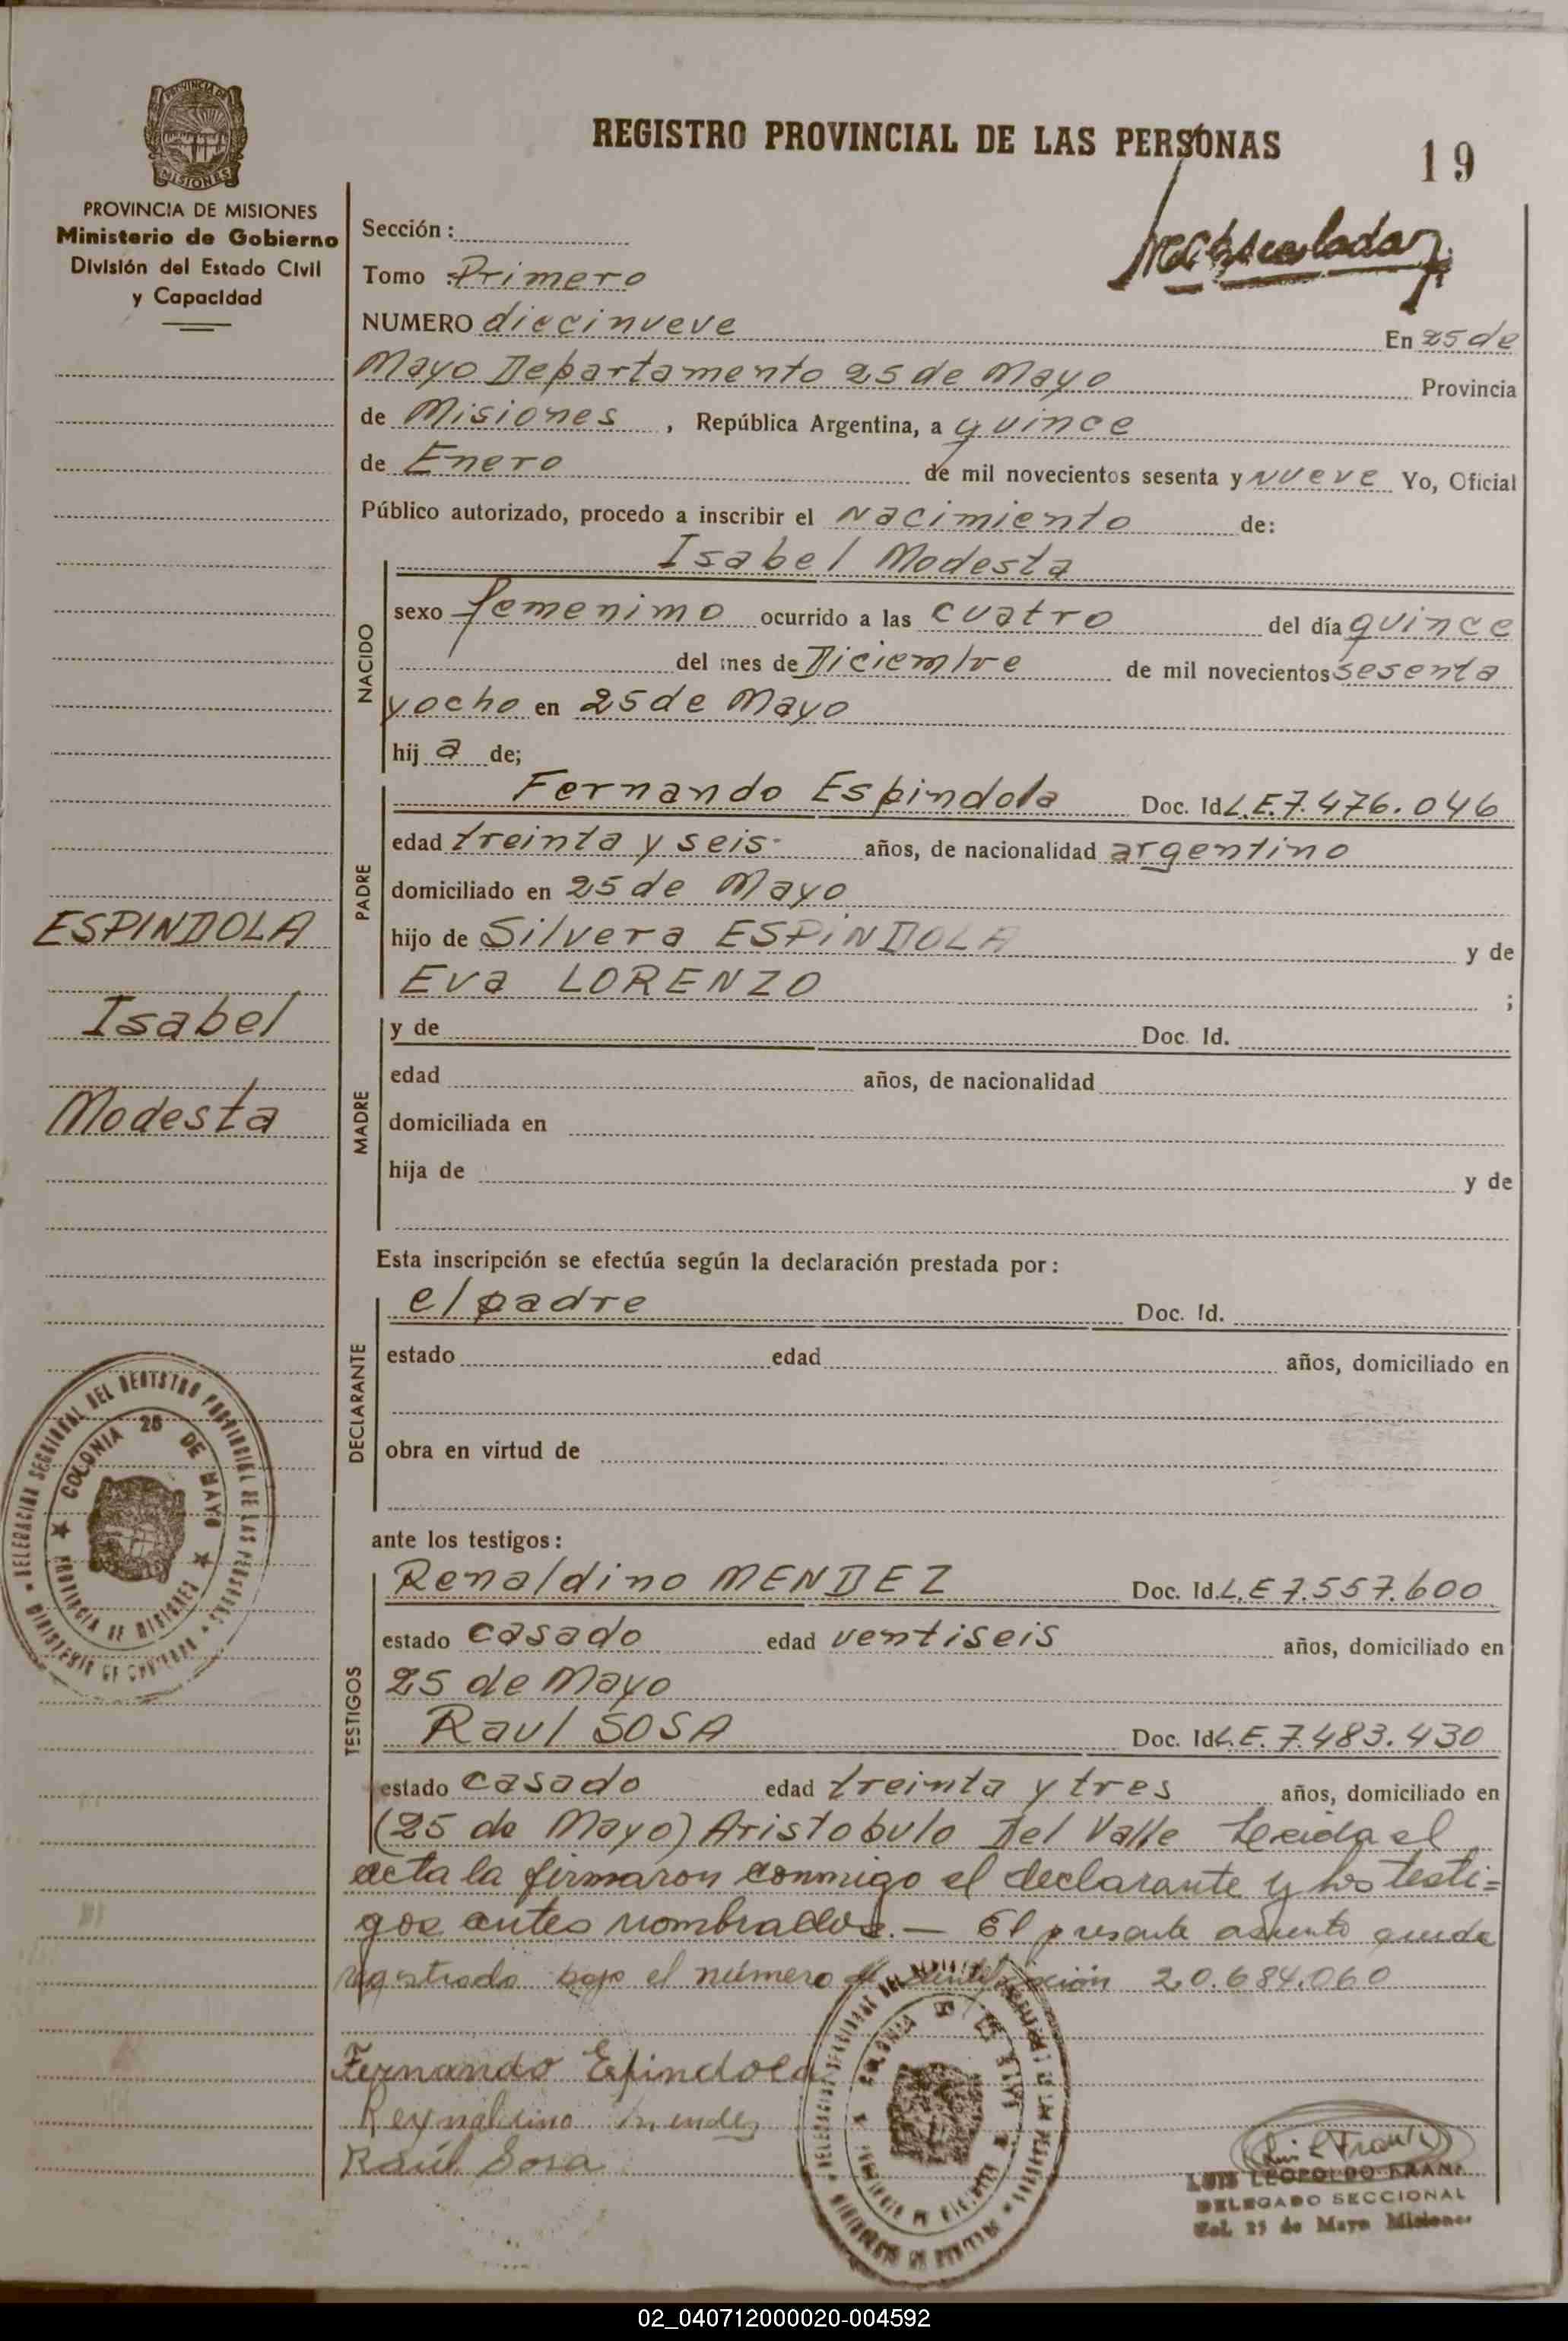 REGISTRO PROVINCIAL DE LAS PERSONAS
19
PROVINCIA DE MISIONES
Ministerio de Gobierno
División del Estado Civil
y Capacidad
Sección :
Tomo : Primero
NUMERO diecinueve En 25 de
Mayo Departamento 25 de Mayo Provincia
de Misiones , República Argentina, a quince
de Enero de mil novecientos sesenta y nueve Yo, Oficial
Público autorizado, procedo a inscribir el nacimiento de:
NACIDO
Isabel Modesta
sexo femenimo ocurrido a las cuatro del día quince
del mes de Diciembre de mil novecientos sesenta
y ocho en 25 de Mayo
hij a de;
PADRE
Fernando Espindola Doc. Id L.E. 7.476.046
edad treinta y seis años, de nacionalidad argentino
domiciliado en 25 de Mayo
hijo de Silvera ESPINDOLA y de
Eva LORENZO ;
ESPINDOLA
Isabel
Modesta
MADRE
y de Doc. Id.
edad años, de nacionalidad
domiciliada en
hija de y de
Esta inscripción se efectúa según la declaración prestada por :
DECLARANTE
el padre Doc. Id.
estado edad años, domiciliado en
obra en virtud de
ante los testigos :
TESTIGOS
Renaldino MENDEZ Doc. Id. L.E 7.557.600
estado casado edad ventiseis años, domiciliado en
25 de Mayo
Raul SOSA Doc. Id L.E. 7.483.430
estado casado edad treinta y tres años, domiciliado en
(25 de Mayo) Aristobulo Del Valle Leida el
acta la firmaron conmigo el declarante y los testi=
gos antes nombrados. — El presente asiento queda
registrado bajo el número de identificación 20.684.060
Fernando Espindola
Reynaldino Mendez
Raúl Sosa
DELEGACION SECCIONAL DEL REGISTRO PROVINCIAL DE LAS PERSONAS
MINISTERIO DE GOBIERNO
COLONIA 25 DE MAYO
PROVINCIA DE MISIONES
LUIS LEOPOLDO FRANK
DELEGADO SECCIONAL
Col. 25 de Mayo Misiones
02_040712000020-004592